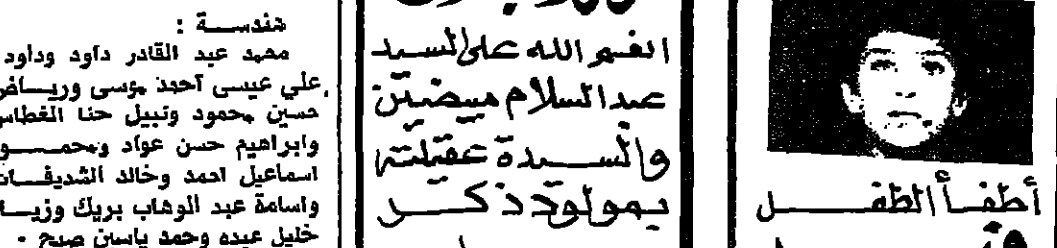 أطفأ الطفل
انعم الله على السيد
عبد السلام مبيضين
والسيدة عقيلته
بمولود ذكر
هندسة :
محمد عبد القادر داود وداود
علي عيسى أحمد موسى ورياض
حسين محمود ونبيل حنا الغطاس
وابراهيم حسن عواد ومحمو
اسماعيل احمد وخالد الشديفات
واسامة عبد الوهاب بريك وزيـ
خليل عبده وحمد ياسين صبح .